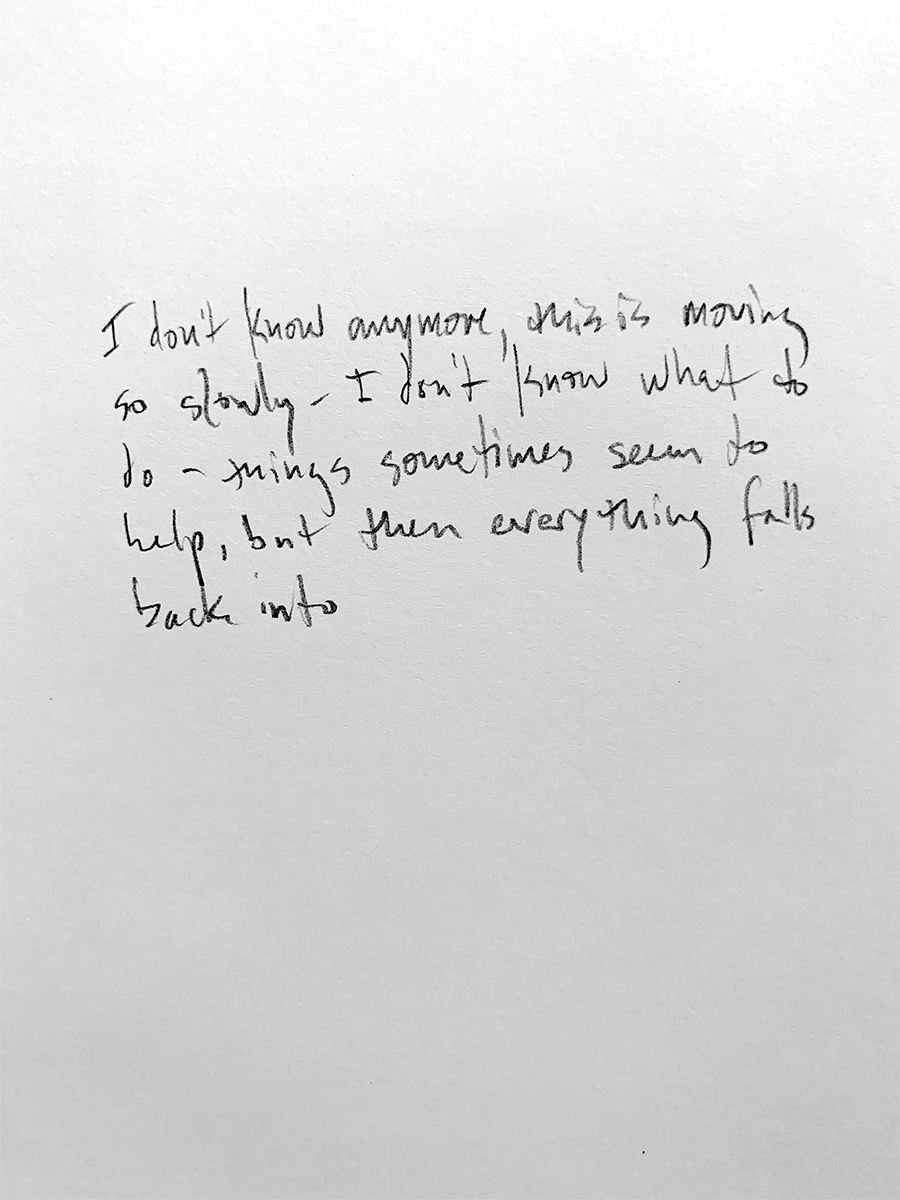 I don't know anymore, this is moving
so slowly – I don't know what to
do – things sometimes seem to
help, but then everything falls
back into